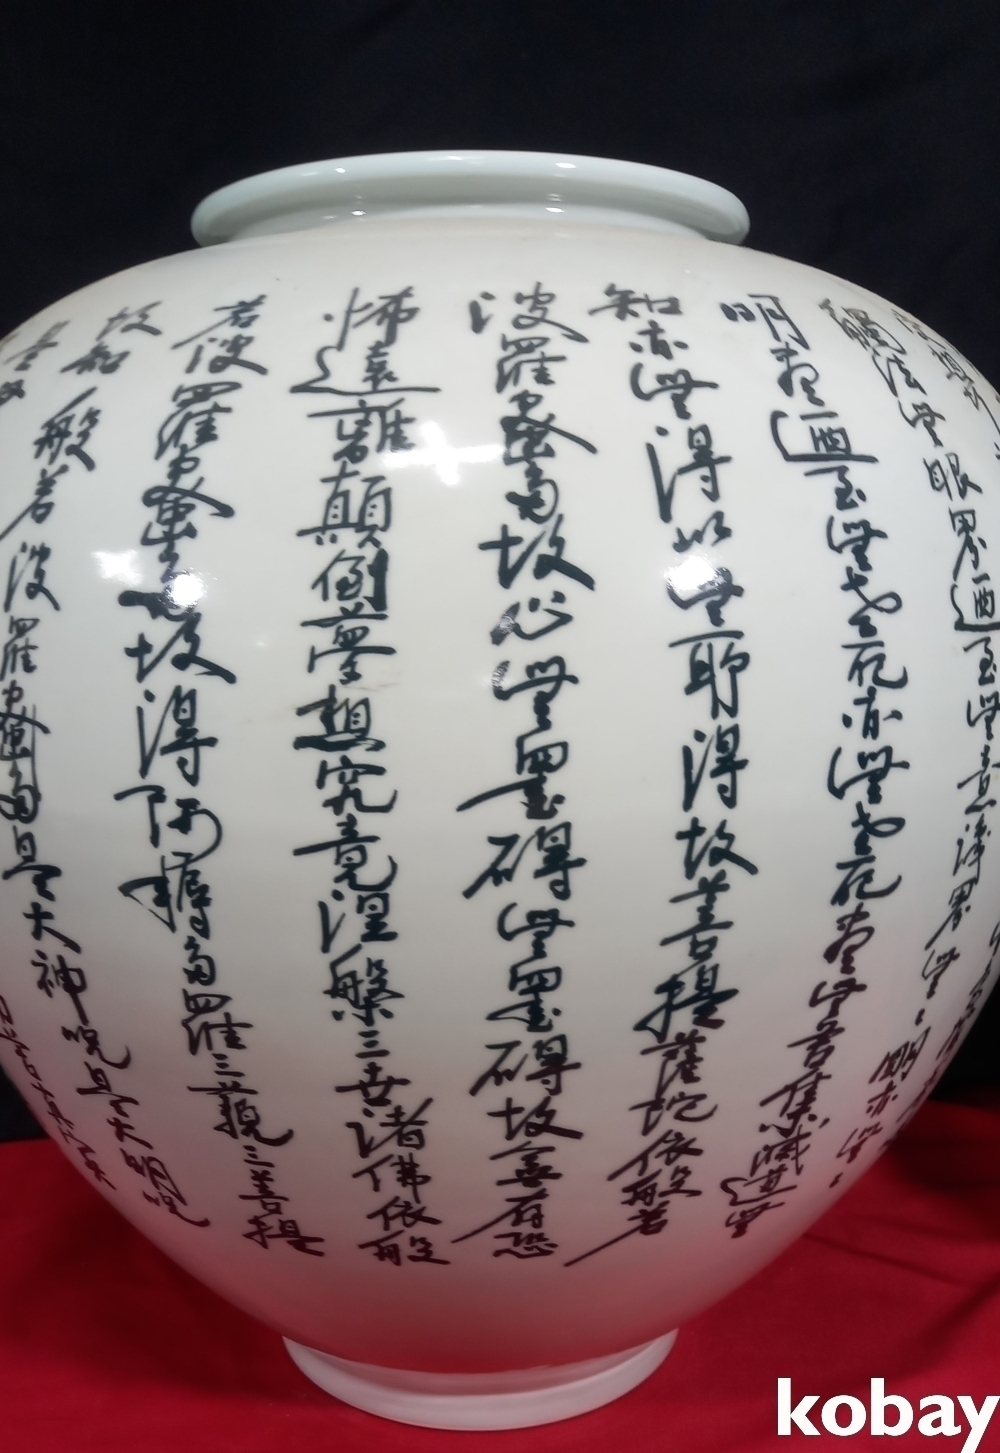 眼界迺至無意識界無
觸法無 明亦無
明盡迺至無老死亦無老死盡無苦集滅道無
知亦無得以無所得故菩提薩陀依般若
波羅蜜多故心無罣碍無罣碍故無有恐
怖遠離顚倒夢想究竟涅槃三世諸佛依般
若波羅蜜多故得阿耨多羅三藐三菩提
故知般若波羅蜜多是大神呪是大明呪
kobay